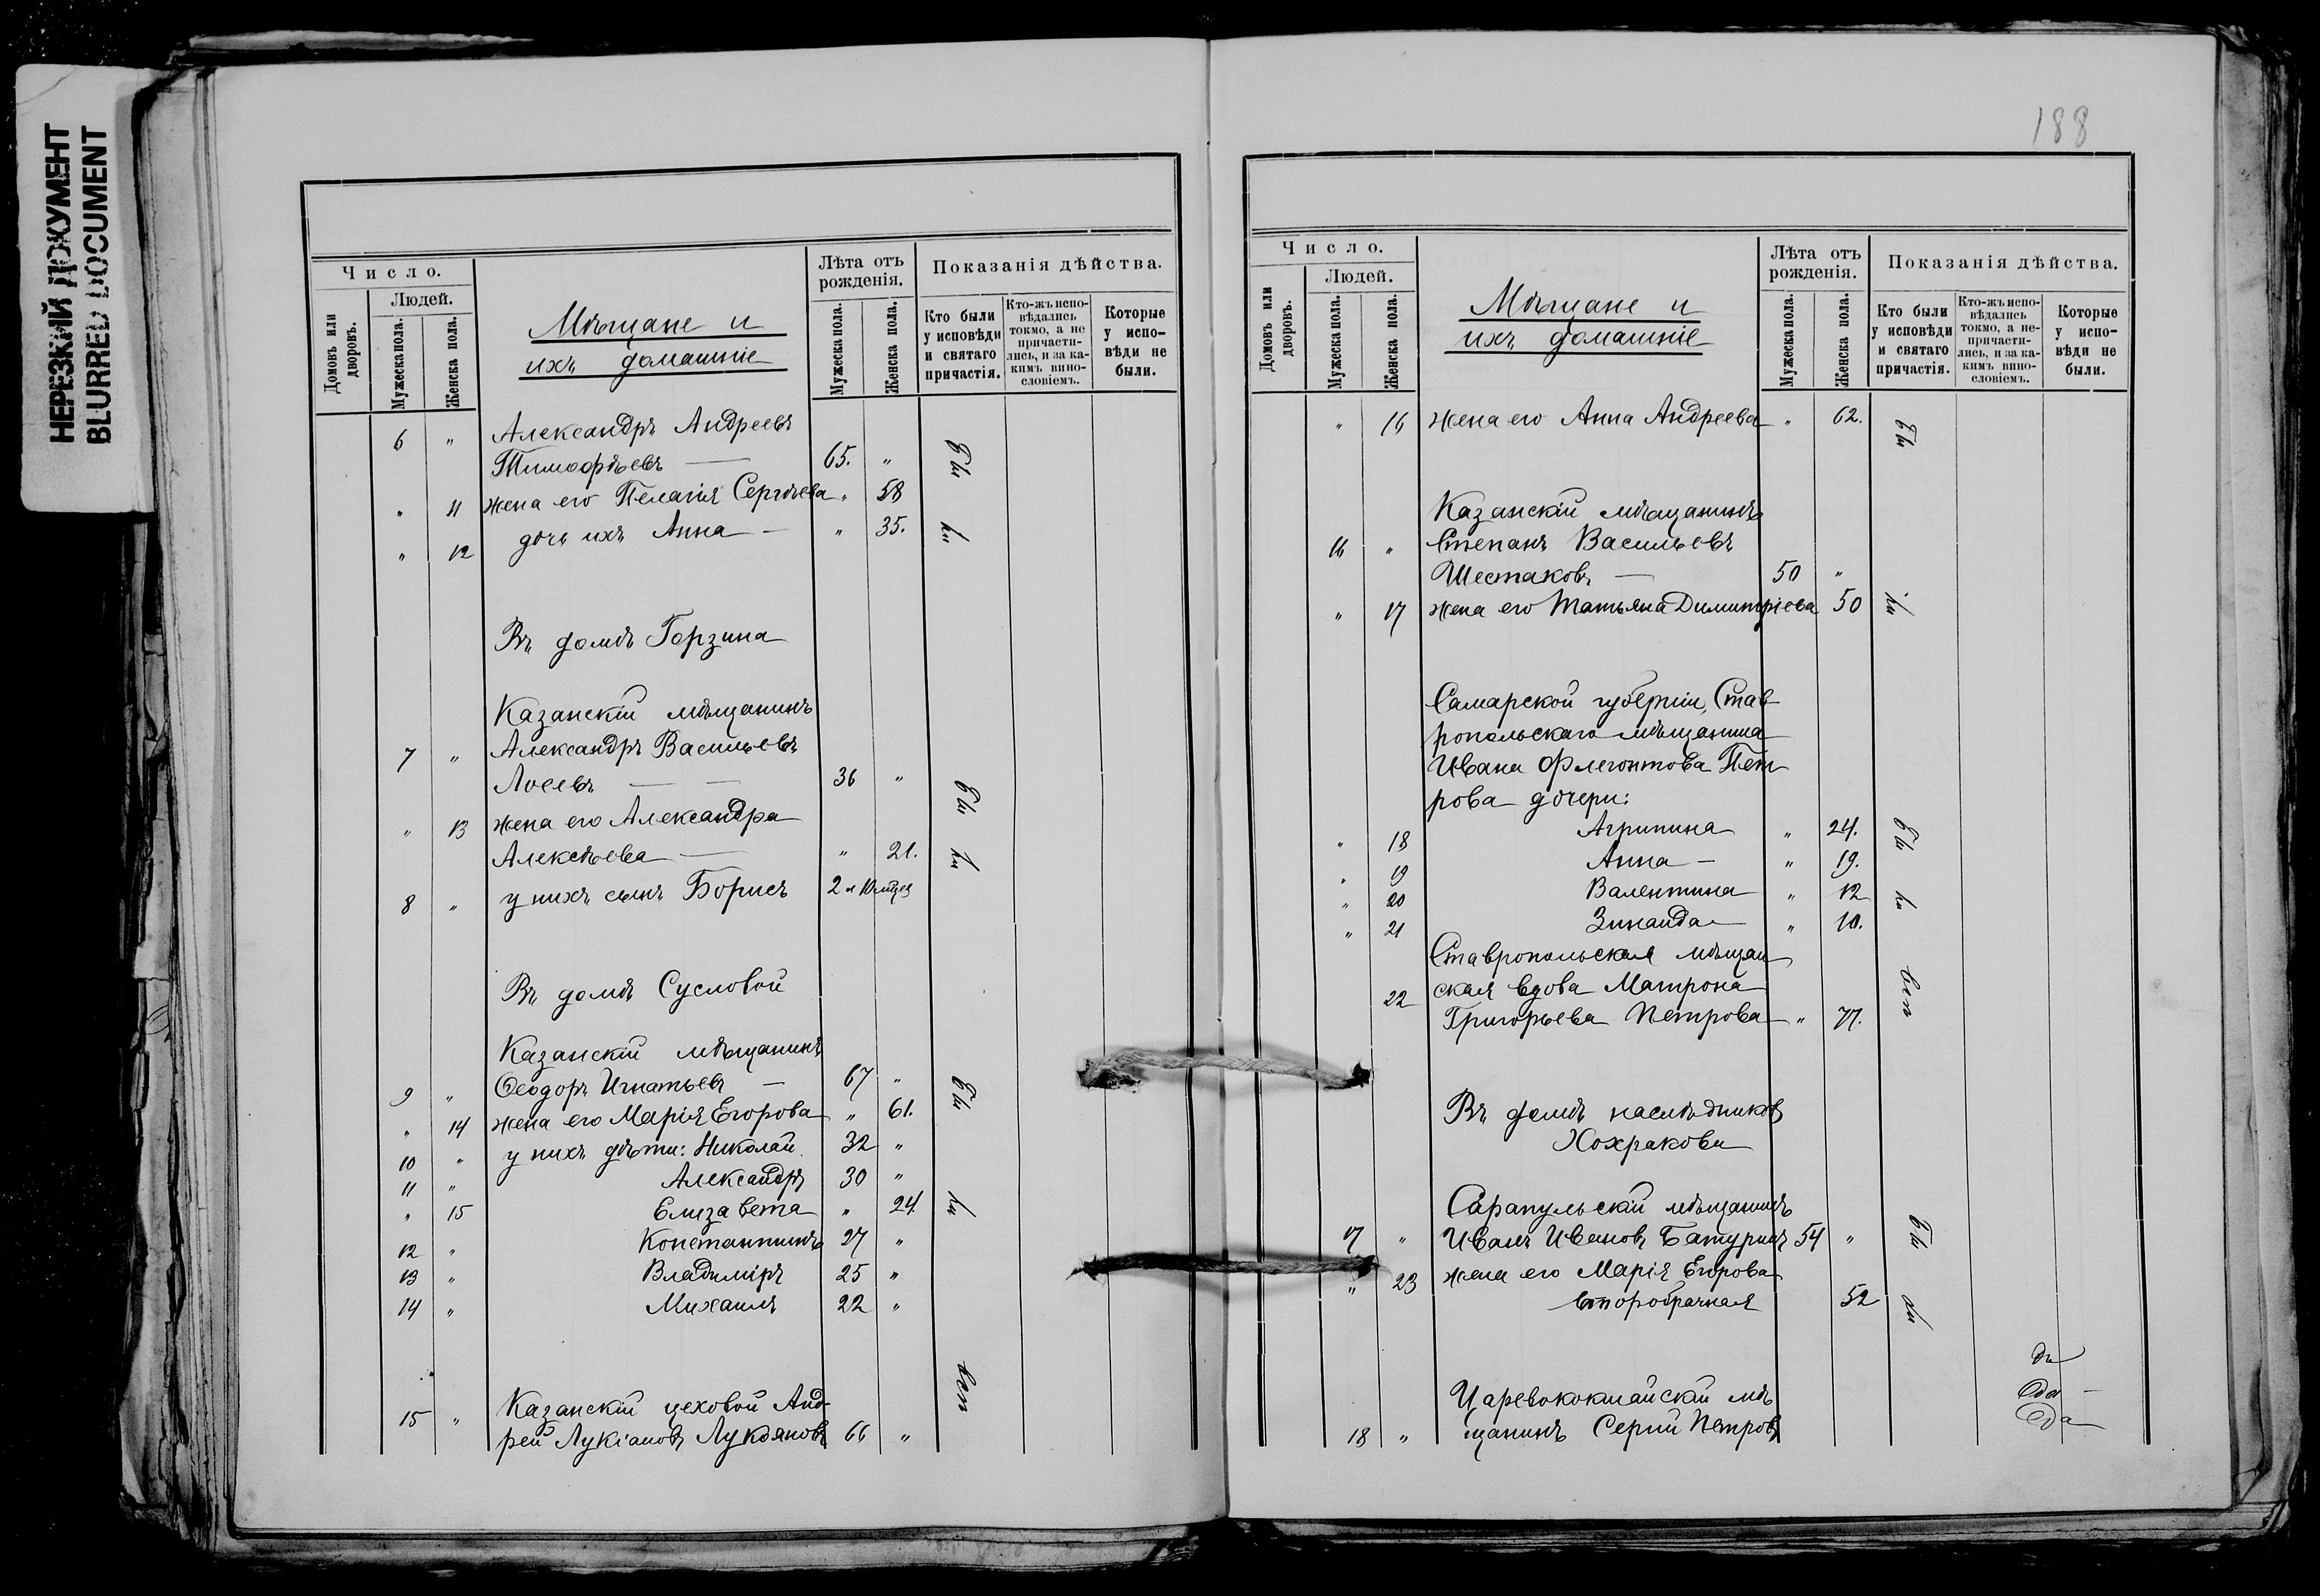 НЕРЕЗКИЙ ДОКУМЕНТ
BLURRED DOCUMENT
Число.
Людей.
Домовъ или дворовъ.
Мужеска пола.
Женска пола.
Мѣщане и
ихъ домашніе
Лѣта отъ рожденія.
Мужеска пола.
Женска пола.
Показанія дѣйства.
Кто были у исповѣди и святаго причастія.
Кто-жъ исповѣдались токмо, а не причастились, и за какимъ винословіемъ.
Которые у исповѣди не были.
6 " Александръ Андреевъ
Тимофѣевъ — 65. "
" 11 жена его Пелагія Сергѣева " 58
" 12 дочь ихъ Анна — " 35.
Въ домѣ Горзина
Казанскій мѣщанинъ
7 " Александръ Васильевъ
Лосевъ — — 36 "
" 13 жена его Александра
Алексѣева — " 21.
8 " у нихъ сынъ Борисъ 2 и 10 мѣсяц
Въ домѣ Сусловой
Казанскій мѣщанинъ
9 " Ѳеодоръ Игнатьевъ — 67 "
" 14 жена его Марія Егорова " 61.
10 " у нихъ дѣти: Николай 32 "
11 " Александръ 30 "
" 15 Елизавета " 24.
12 " Константинъ 27 "
13 " Владиміръ 25 "
14 " Михаилъ 22 "
15 " Казанскій цеховой Анд-
рей Лукіановъ Лукояновъ 66 "
188
Число.
Людей.
Домовъ или дворовъ.
Мужеска пола.
Женска пола.
Мѣщане и
ихъ домашніе
Лѣта отъ рожденія.
Мужеска пола.
Женска пола.
Показанія дѣйства.
Кто были у исповѣди и святаго причастія.
Кто-жъ исповѣдались токмо, а не-причастились, и за какимъ винословіемъ.
Которые у исповѣди не были.
" 16 жена его Анна Андреева " 62.
Казанскій мѣщанинъ
16 " Степанъ Васильевъ
Шестаковъ — 50 "
" 17 жена его Татьяна Димитріева 50
Самарской губерніи, Став
ропольскаго мѣщанина
Ивана Флегонтова Пет
рова дочери:
" 18 Агрипина " 24.
" 19 Анна — " 19.
" 20 Валентина " 12
" 21 Зинаида " 10.
Ставропольская мѣщан
22 ская вдова Матрона
Григорьева Петрова " 77.
Въ домѣ наслѣдниковъ
Хохракова
Сарапульскій мѣщанинъ
17 " Иванъ Ивановъ Батуринъ 54 "
" 23 жена его Марія Егорова
второбрачная 52
Царевококшайскій мѣ
18 " щанинъ Сергій Петровъ